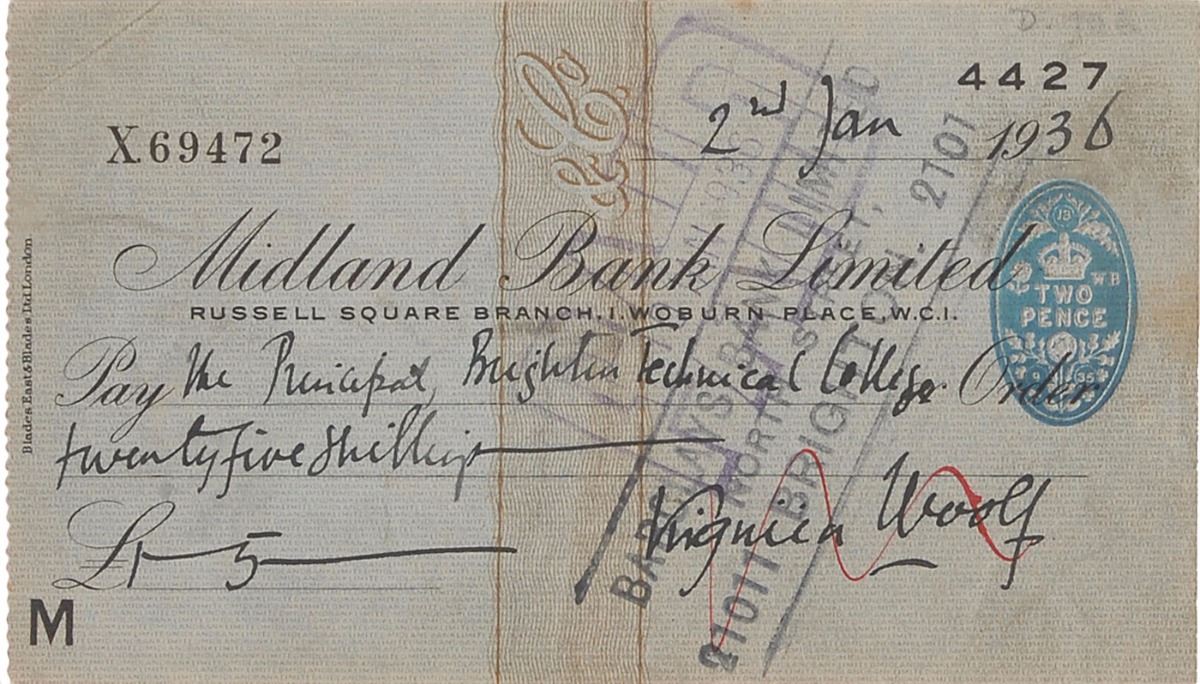 4427
2nd Jan 1936
X.69472
& Co.
Midland Bank Limited
RUSSELL SQUARE BRANCH, 1. WOBURN PLACE, W.C.1.
TWO
PENCE
Pay the Principal, Brighton Technical College Order
twenty five shillings
£1 - 5
Virginia Woolf
M
Blades East & Blades Ltd London
BARCLAYS BANK LIMITED
NORTH STREET,
21011 BRIGHTON 2101